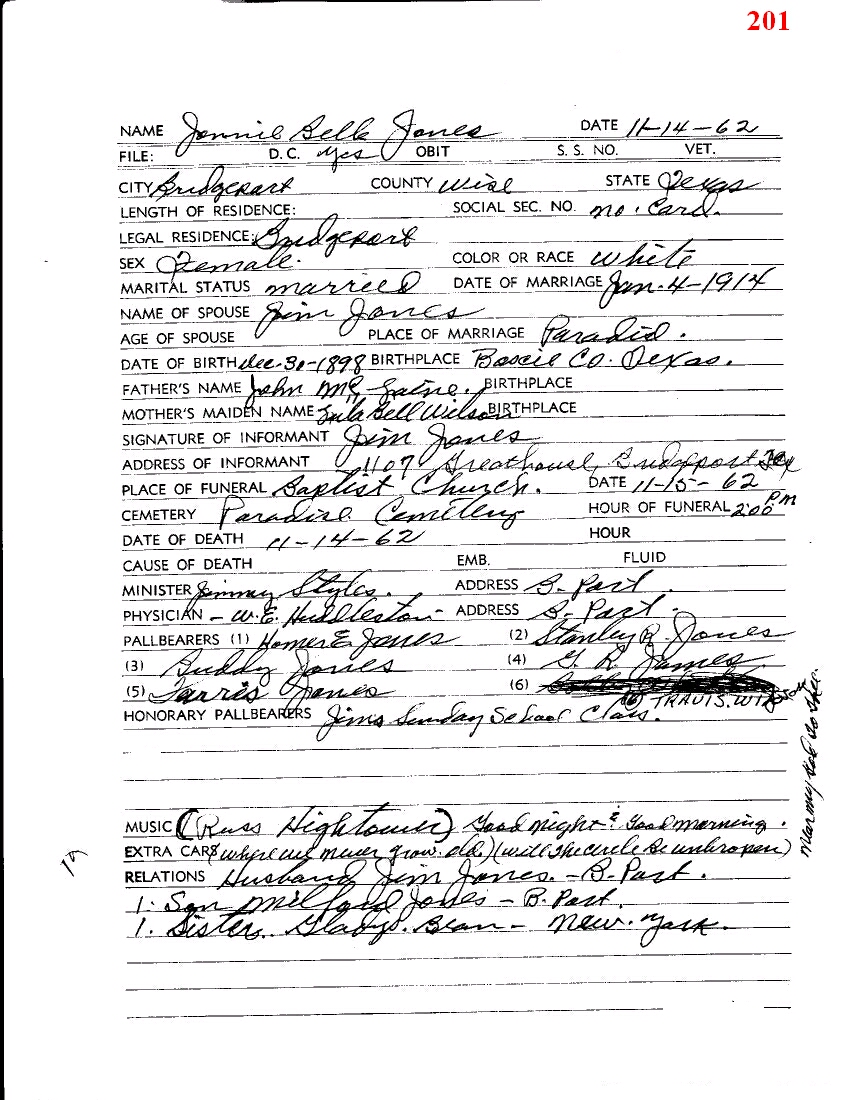 201
NAME Jonnie Belle Jones DATE 11-14-62
FILE: D.C. yes OBIT S. S. NO. VET.
CITY Bridgeport COUNTY Wise STATE Texas
LENGTH OF RESIDENCE: SOCIAL SEC. NO. no. Card.
LEGAL RESIDENCE: Bridgeport
SEX Female. COLOR OR RACE white
MARITAL STATUS married DATE OF MARRIAGE Jan. 4-1914
NAME OF SPOUSE Jim Jones
AGE OF SPOUSE PLACE OF MARRIAGE Paradise.
DATE OF BIRTH Dec. 30-1898 BIRTHPLACE Co. Texas.
FATHER'S NAME John BIRTHPLACE
MOTHER'S MAIDEN NAME Bell Wilson BIRTHPLACE
SIGNATURE OF INFORMANT Jim Jones
ADDRESS OF INFORMANT 1107 Greathouse, Bridgeport Tex
PLACE OF FUNERAL Baptist Church. DATE 11-15-62
CEMETERY Paradise Cemetery HOUR OF FUNERAL 2:00 PM
DATE OF DEATH 11-14-62 HOUR
CAUSE OF DEATH EMB. FLUID
MINISTER Jimmy Styles. ADDRESS B. Port.
PHYSICIAN - W.E. Huddleston - ADDRESS B. Port.
PALLBEARERS (1) Homer E. Jones (2) Stanley R. Jones
(3) Buddy Jones (4) G. R. James
(5) Farris Jones (6)
(6) TRAVIS.
HONORARY PALLBEARERS Jims Sunday School Class.
MUSIC (Russ Hightower) Good night & Good morning.
EXTRA CARS (where we never grow. old.) (will the circle be unbroken)
RELATIONS Husband Jim Jones. - B. Port.
1. Son Milford Jones - B. Port.
1. Sister. Gladys. Bean - New. York.